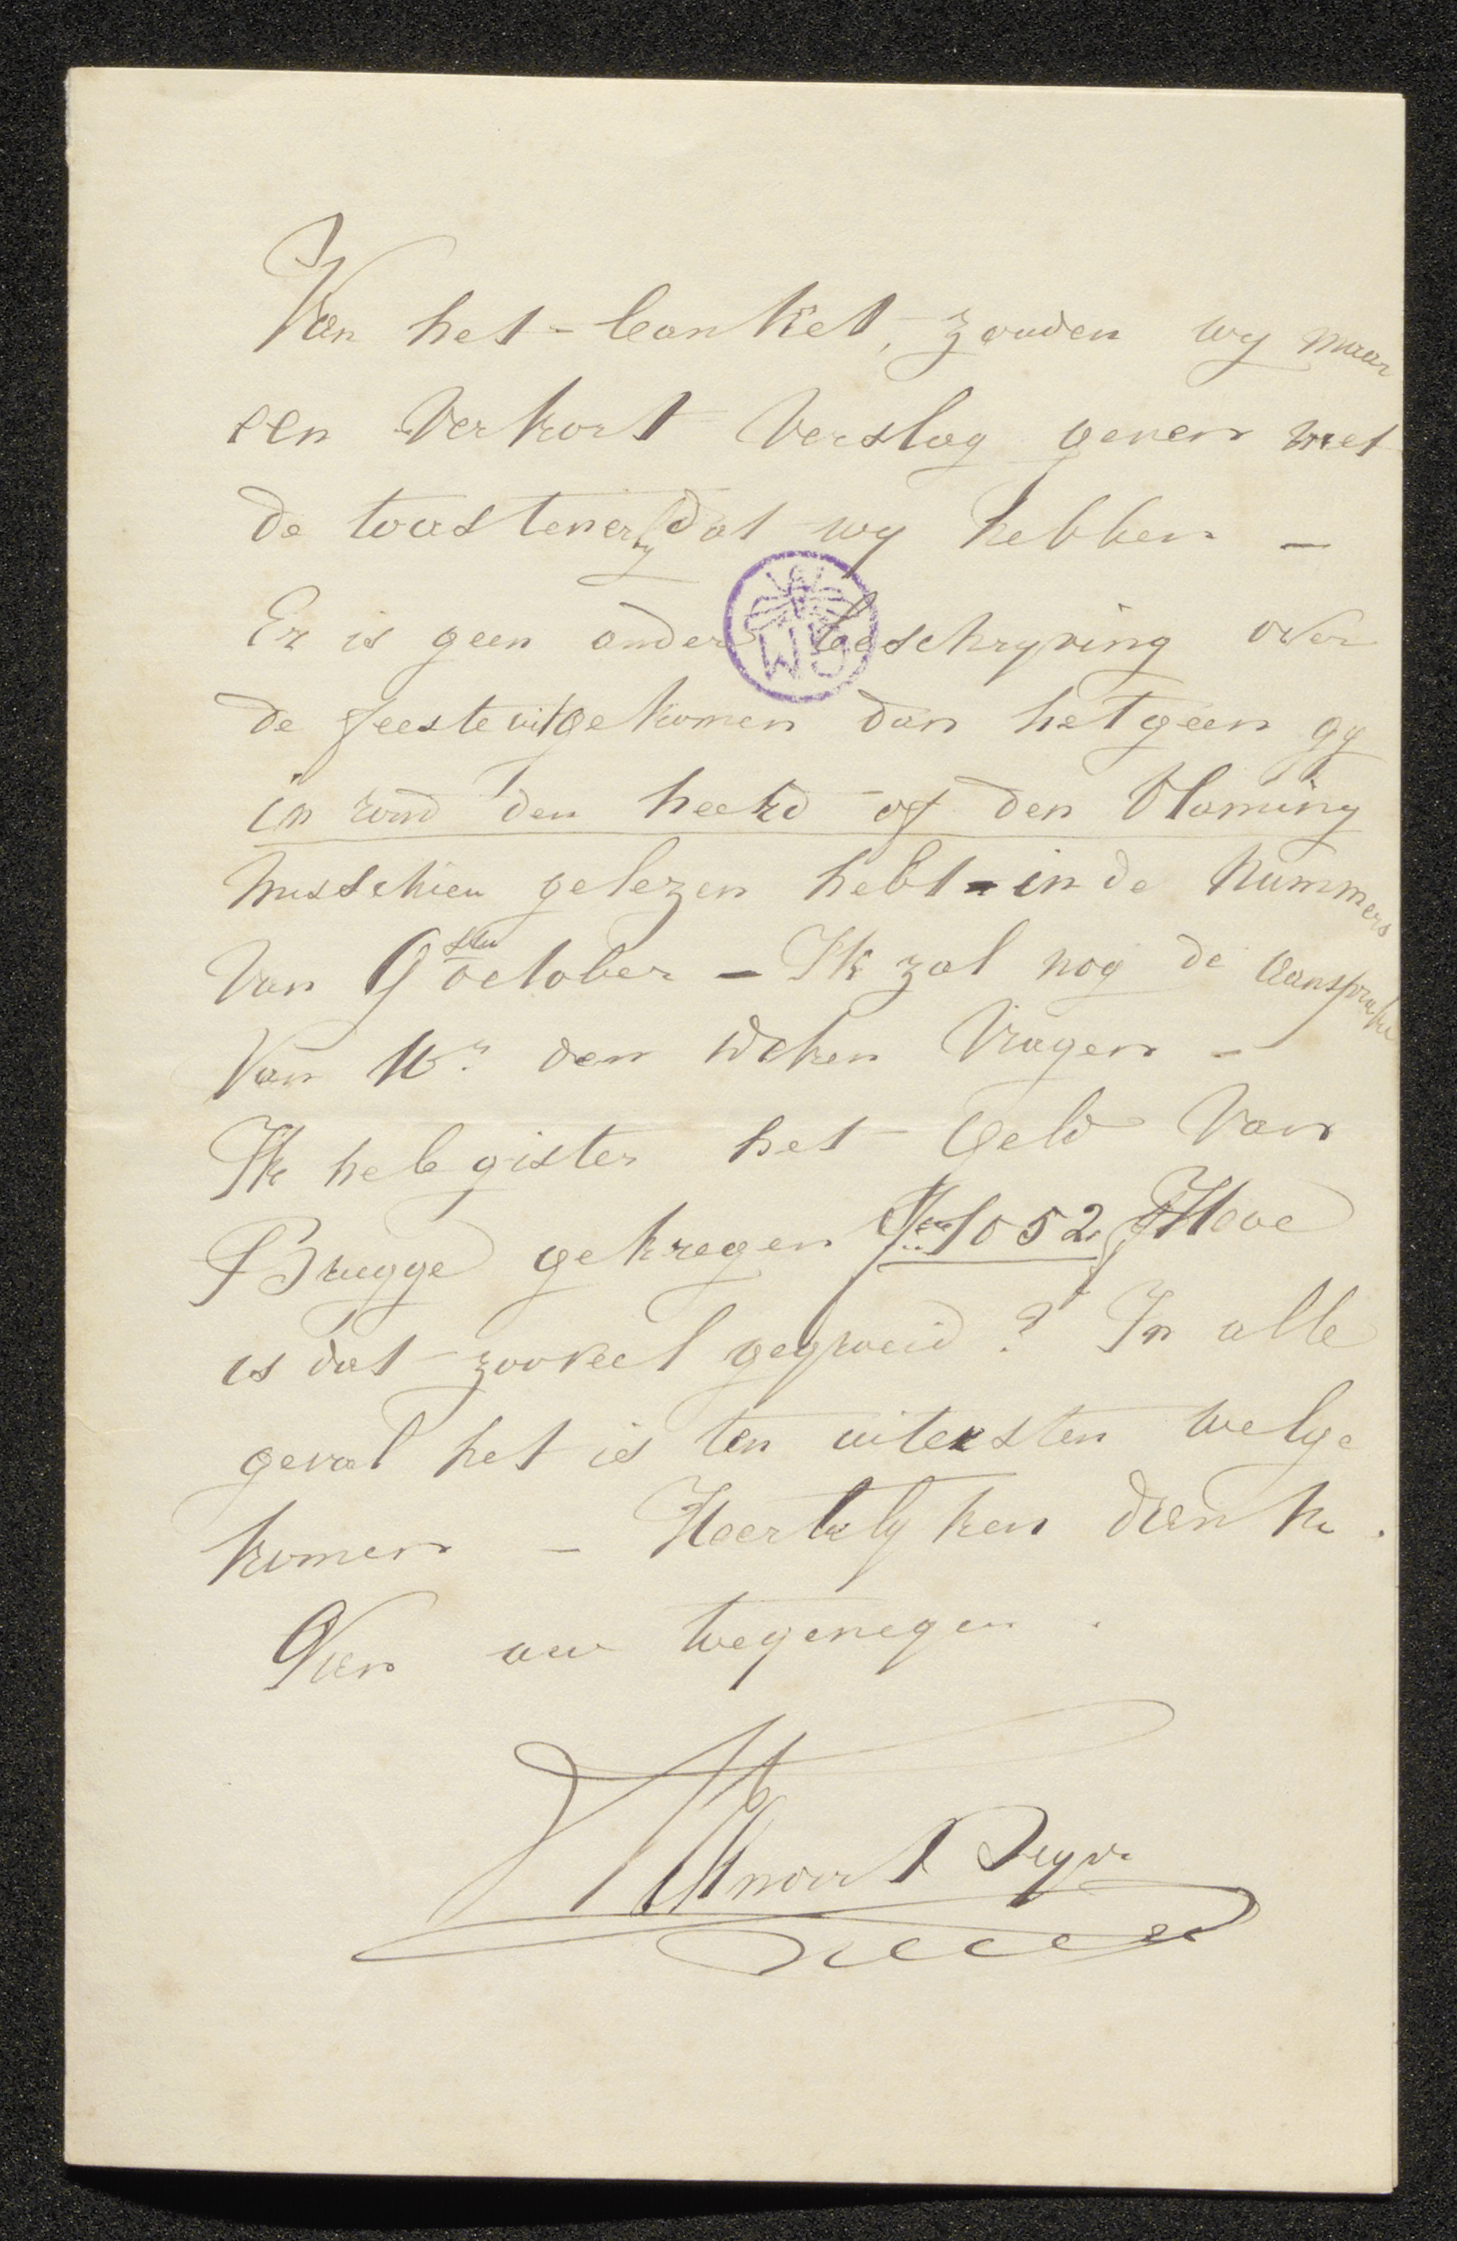 Van het banket, zouden wy maar
een verkort verslag geven met
de toosten dat wy hebben —
Er is geen ander beschryving over
de feeste uitgekomen dan hetgeen gy
in rond den heerd of den Vlaming
misschien gelezen hebt - in de nummers
van 9sten october — Ik zal nog de aansprake
van Mr. den deken vragen —
Ik heb gister het geld van
Brugge gekregen Fr 1052, Hoe
is dat zooveel gegroeid? In alle
geval het is ten uitersten welge
komen — Heertelyken dank.
Van uw toegenegen.